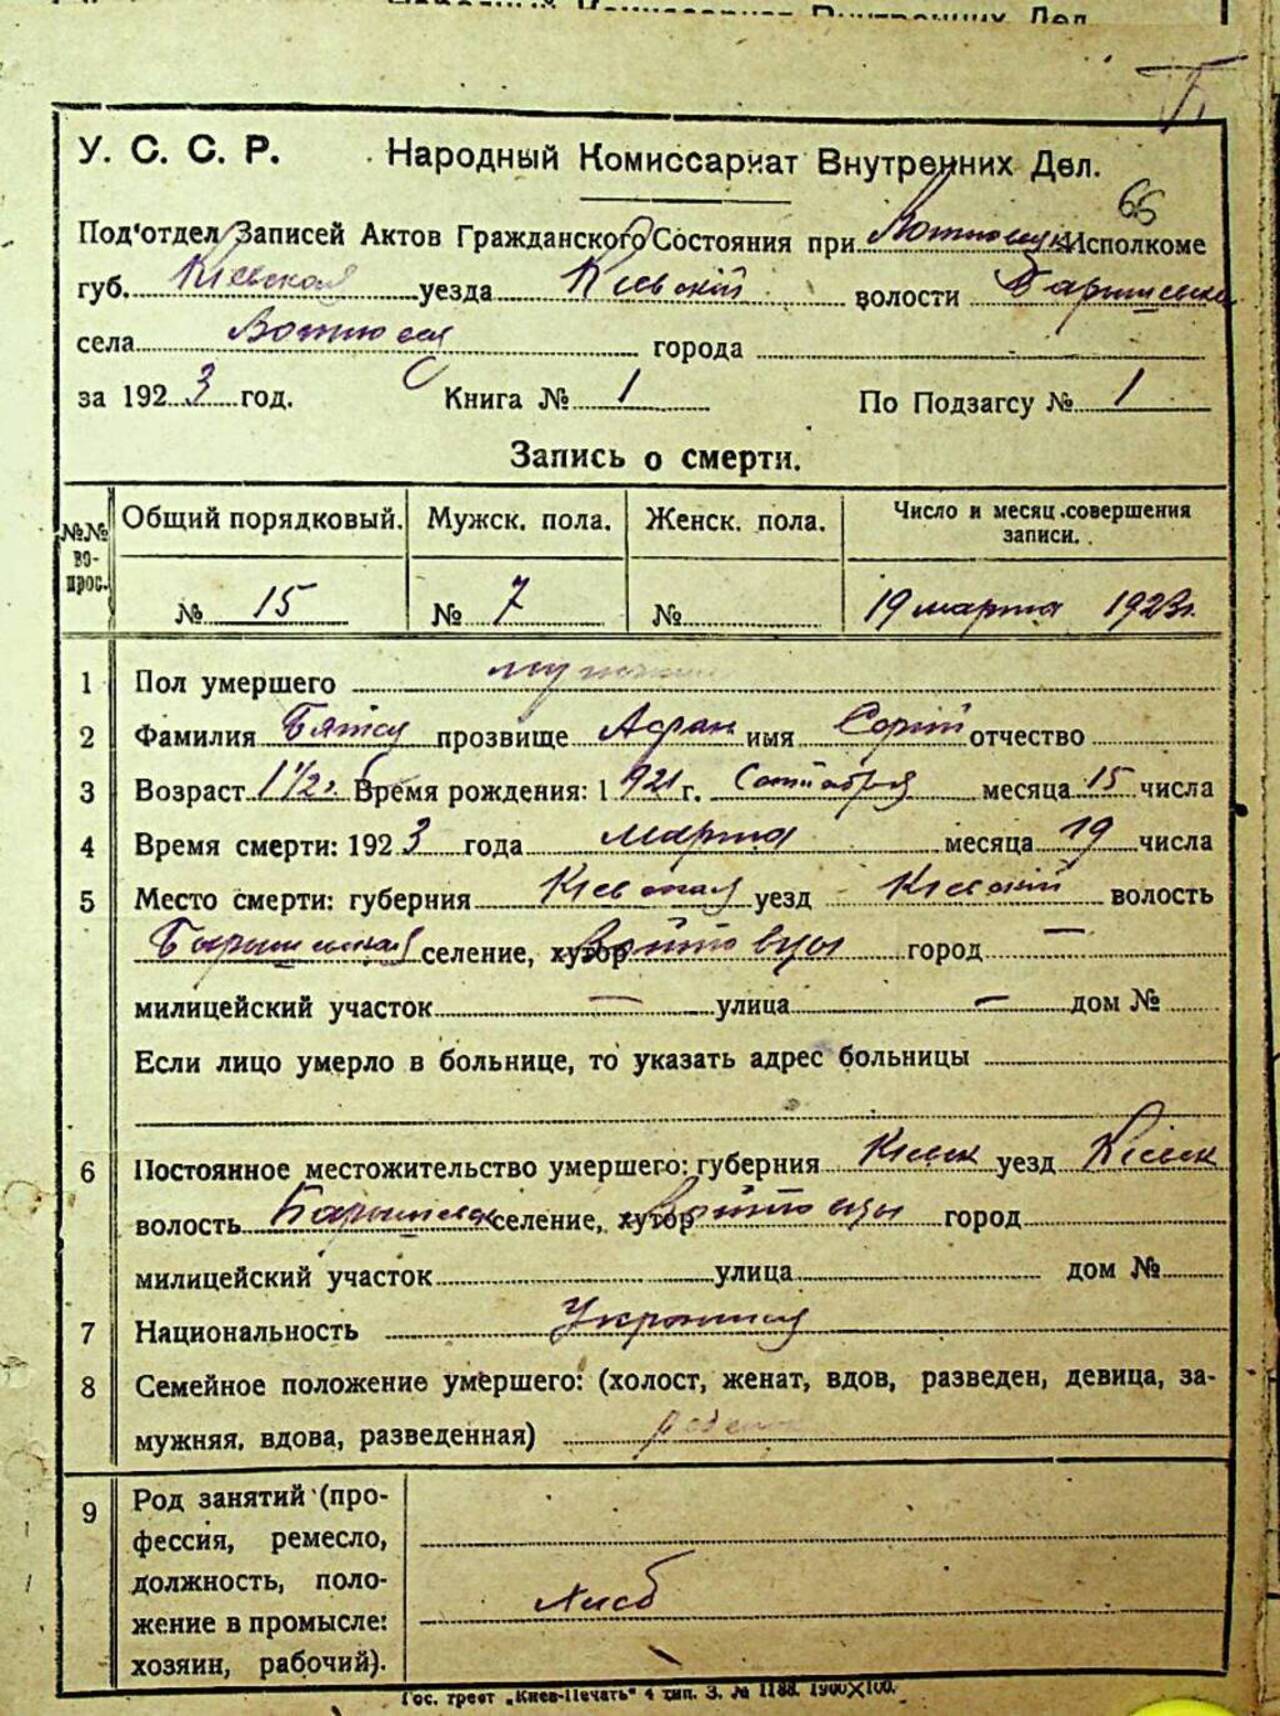 У. С. С. Р. Народный Комиссариат Внутренних Дел.
66
Под'отдел Записей Актов Гражданского Состояния при Исполкоме
губ. Кіевская уезда Кіевскій волости
села города
за 1923 год. Книга № 1 По Подзагсу № 1
Запись о смерти.
№№ вопрос. Общий порядковый. Мужск. пола. Женск. пола. Число и месяц совершения записи.
№ 15 № 7 № 19 марта 1923г.
1 Пол умершего
2 Фамилия прозвище имя отчество
3 Возраст 1 1/2 г. Время рождения: 1921 г. месяца 15 числа
4 Время смерти: 1923 года марта месяца 19 числа
5 Место смерти: губерния Кіевская уезд Кіевскій волость
селение, хутор Войтовцы город —
милицейский участок — улица — дом №
Если лицо умерло в больнице, то указать адрес больницы
6 Постоянное местожительство умершего: губерния Кіевск уезд Кіевск
волость селение, хутор Войтовцы город
милицейский участок улица дом №
7 Национальность
8 Семейное положение умершего: (холост, женат, вдов, разведен, девица, за-
мужняя, вдова, разведенная)
9 Род занятий (про-
фессия, ремесло,
должность, поло-
жение в промысле:
хозяин, рабочий).
Гос. трест „Киев-Печать“ 4 тип. З. № 1188. 1900×100.